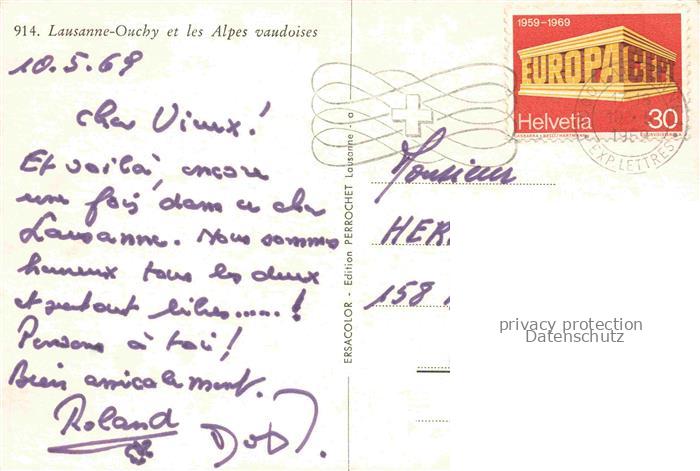 914. Lausanne-Ouchy et les Alpes vaudoises
10.5.69
Cher Vieux!
Et voilà, encore
une fois, dans ce cher
Lausanne. Nous sommes
heureux tous les deux
et surtout libres.....!
Pensons à toi!
Bien amicalement.
Roland
ERSACOLOR - Edition PERROCHET Lausanne - a
1959-1969
EUROPA CEPT
Helvetia 30
EXP. LETTRES
Monsieur
HER
158
privacy protection
Datenschutz